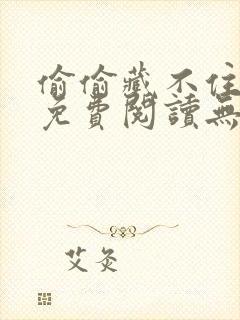 偷偷藏不住
免費閱讀無
艾灸